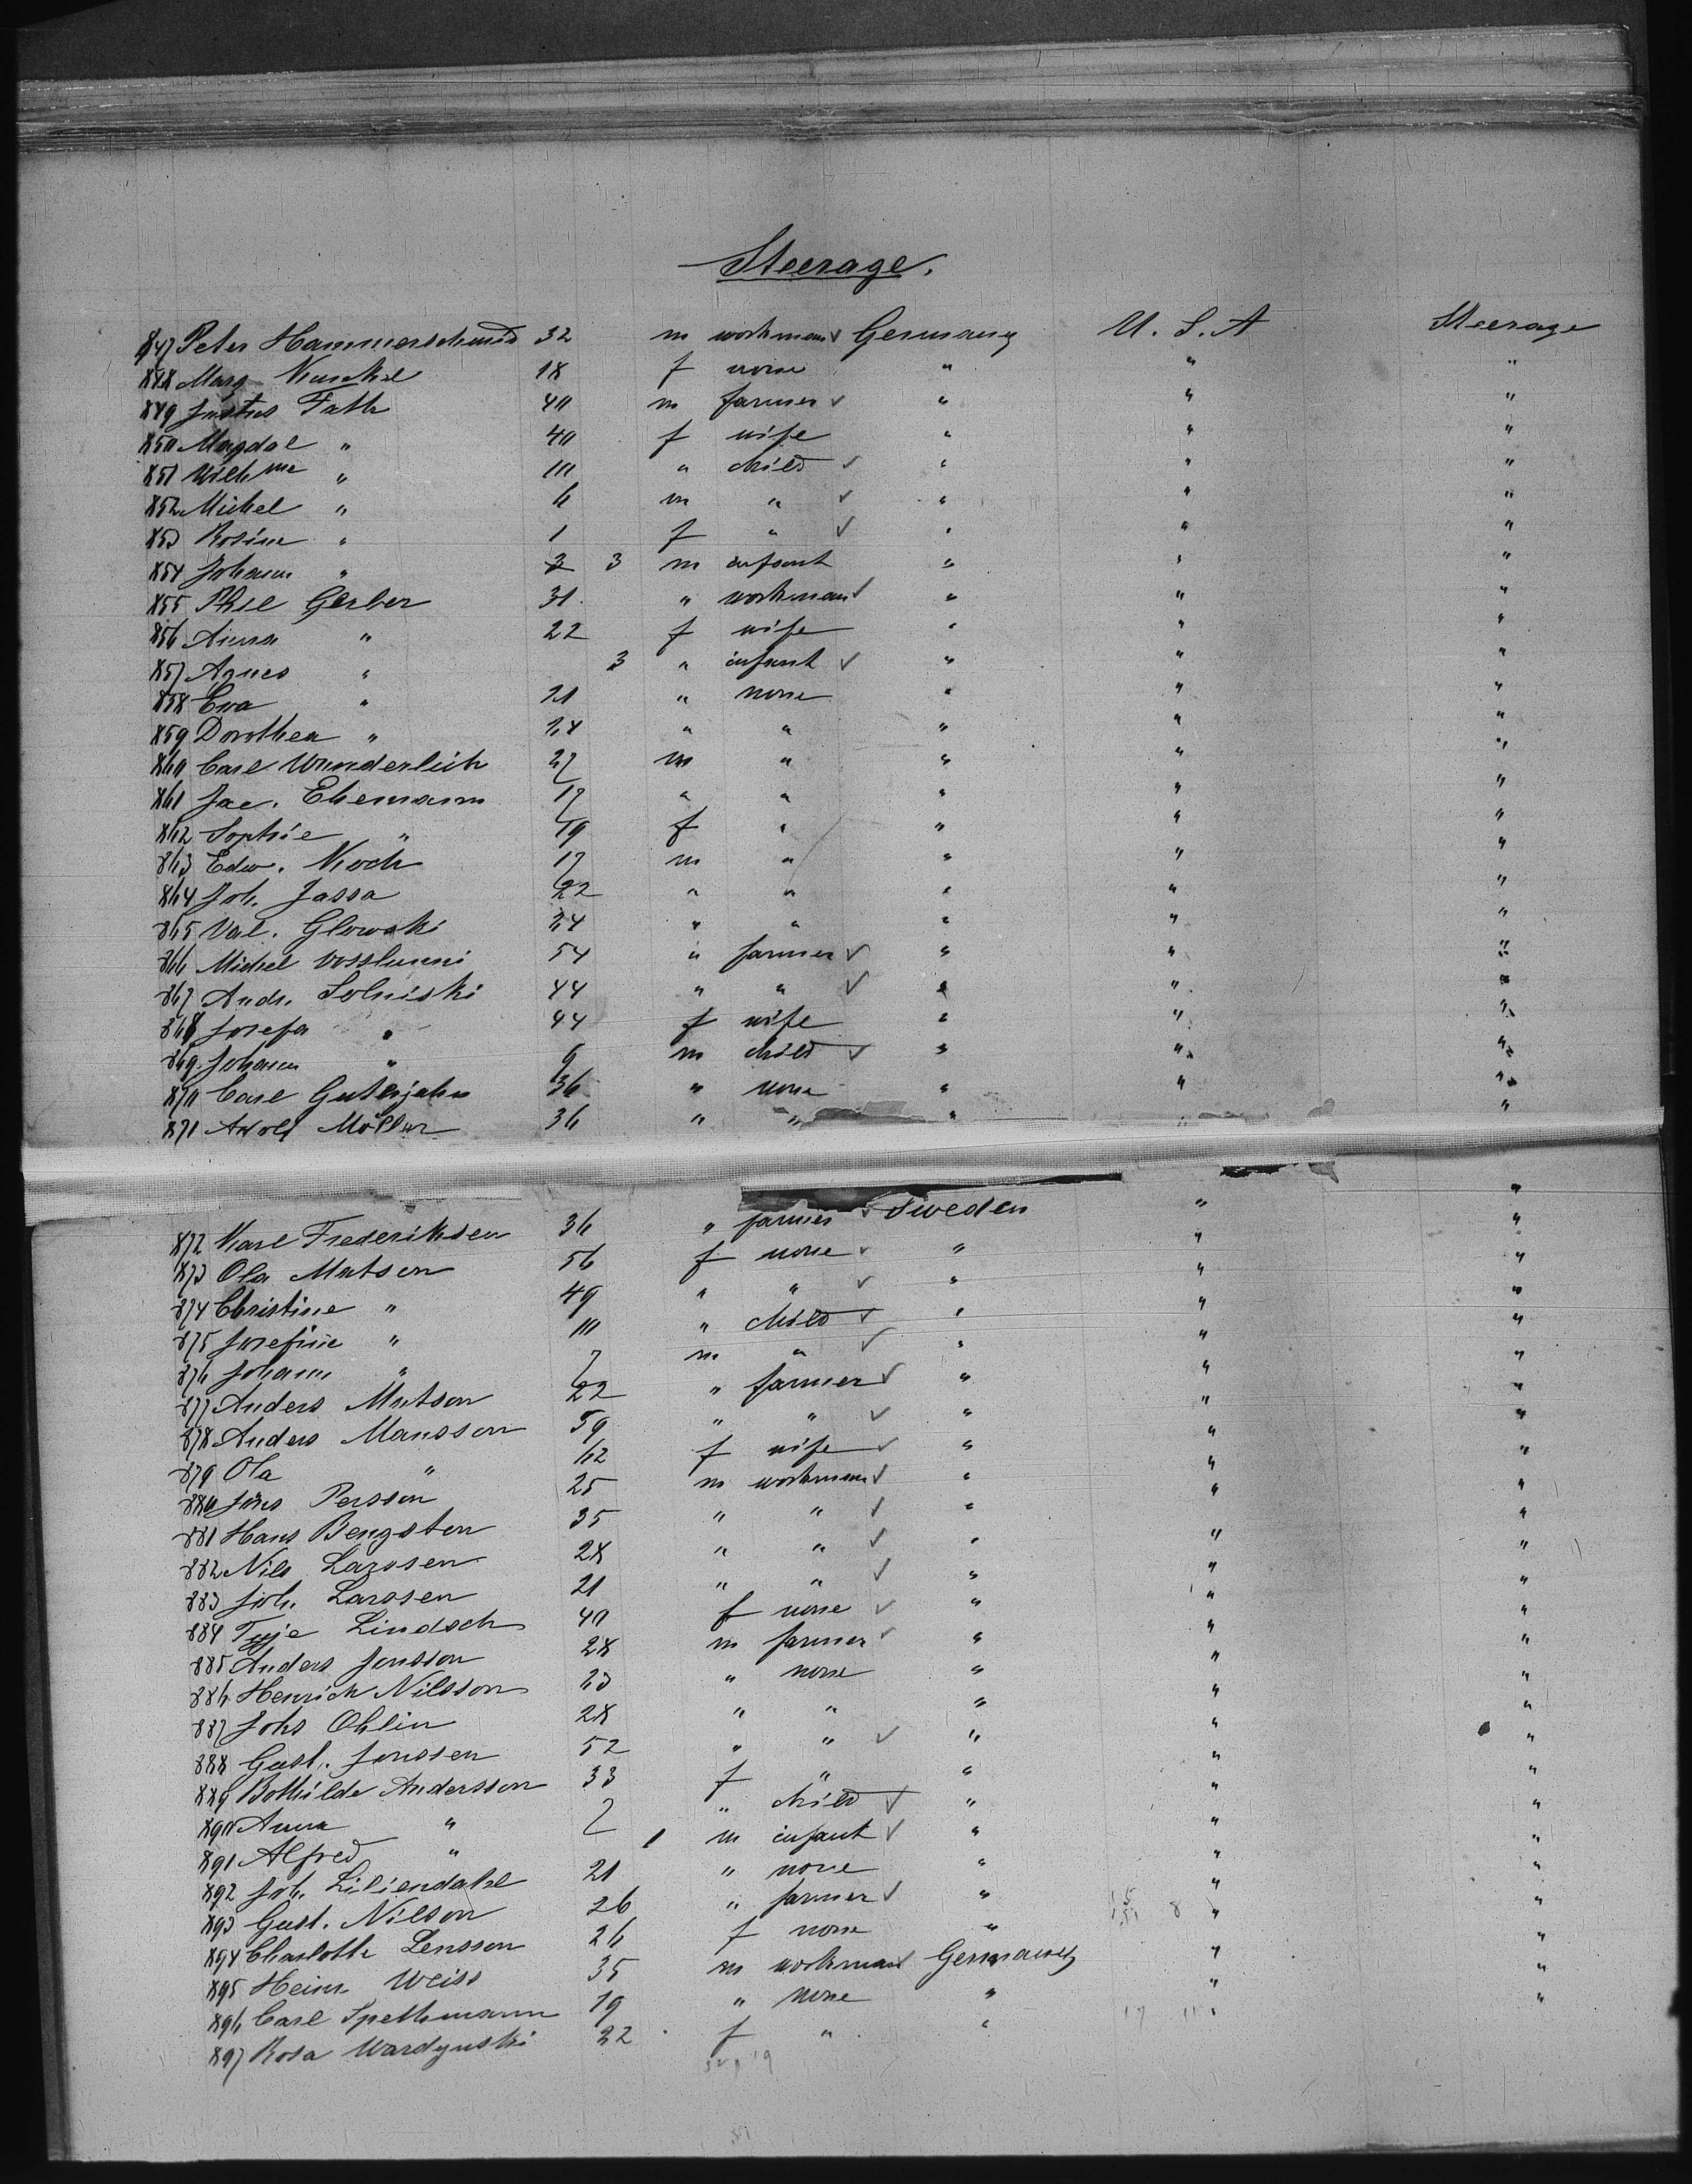 Steerage.
847 Peter Hammerschmid 32 m workman ✓ Germany U. S. A Steerage
848 Marg Kunkel 18 f none " " "
849 Justus Fath 40 m farmer ✓ " " "
850 Magdal " 40 f wife " " "
851 Wilhme " 10 " child ✓ " " "
852 Michel " 6 m " ✓ " " "
853 Rosine " 1 f " ✓ " " "
854 Johann " 3 m infant " " "
855 Phil Gerber 31 " workman ✓ " " "
856 Anna " 22 f wife " " "
857 Agnes " 3 " infant ✓ " " "
858 Eva " 21 " none " " "
859 Dorothea " 24 " " " " "
860 Carl Wunderlich 27 m " " " "
861 Jac. Ehemann 17 " " " " "
862 Sophie " 19 f " " " "
863 Edw. Koch 17 m " " " "
864 Joh. Jassa 22 " " " " "
865 Val. Glowski 24 " " " " "
866 Michel 54 " farmer ✓ " " "
867 Andr. Solniski 44 " " ✓ " " "
868 Josefa " 44 f wife " " "
869 Johann " 9 m child ✓ " " "
870 Carl Guterjahn 36 " none " " "
871 Adolf Möller 36 " " " " "
872 Karl Frederiksen 36 " farmer ✓ Sweden " "
873 Ola Matson 56 f none ✓ " " "
874 Christine " 49 " " ✓ " " "
875 Josefine " 10 " child ✓ " " "
876 Johann " 7 m " ✓ " " "
877 Anders Matson 22 " farmer ✓ " " "
878 Anders Mansson 59 " " ✓ " " "
879 Ola " 62 f wife ✓ " " "
880 Jöns Persson 25 m workman ✓ " " "
881 Hans Bengsten 35 " " ✓ " " "
882 Nils Larssen 28 " " ✓ " " "
883 Joh. Larssen 21 " " ✓ " " "
884 Lindsch 40 f none ✓ " " "
885 Anders Jonsson 28 m farmer ✓ " " "
886 Henrich Nilsson 23 " none " " "
887 Johs Ohlin 28 " " " " "
888 Gust. Jonssen 52 " " ✓ " " "
889 Bothilde Andersson 33 f " " " "
890 Anna " 7 " child ✓ " " "
891 Alfred " 1 m infant ✓ " " "
892 Joh. Liliendahl 21 " none " " "
893 Gust. Nilson 26 " farmer ✓ " " "
894 Charlotte Lensson 26 f none " " "
895 Heinr Weiss 35 m workman ✓ Germany " "
896 Carl Spethmann 19 " none " " "
897 Rosa Wardynski 22 f " " " "